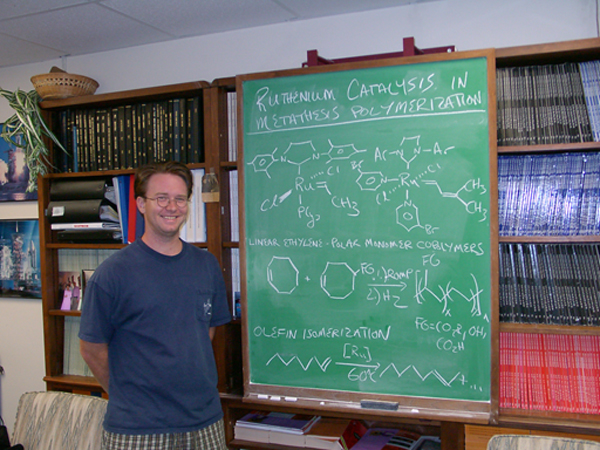 RUTHENIUM CATALYSIS IN
METATHESIS POLYMERIZATION
Cl Ru Cl
CH₃
Ar-N N-Ar
Br Ru Cl
CH₃
CH₃
Br
LINEAR ETHYLENE-POLAR MONOMER COPOLYMERS
+ FG 1) ROMP
2) H₂
FG
FG=CO₂R, OH,
CO₂H
OLEFIN ISOMERIZATION
[Ru]
60°C
+ ...